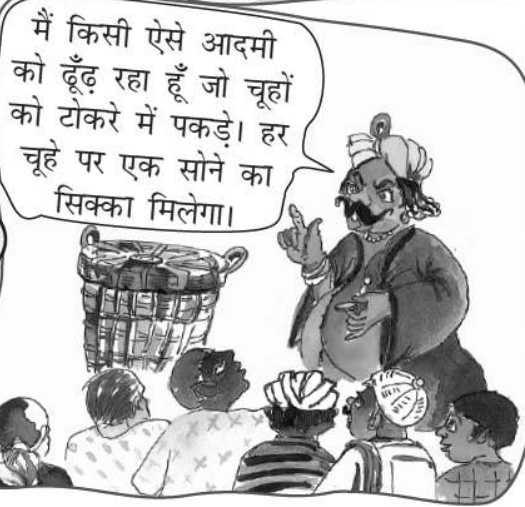 मैं किसी ऐसे आदमी
को ढूँढ़ रहा हूँ जो चूहों
को टोकरे में पकड़े। हर
चूहे पर एक सोने का
सिक्का मिलेगा।